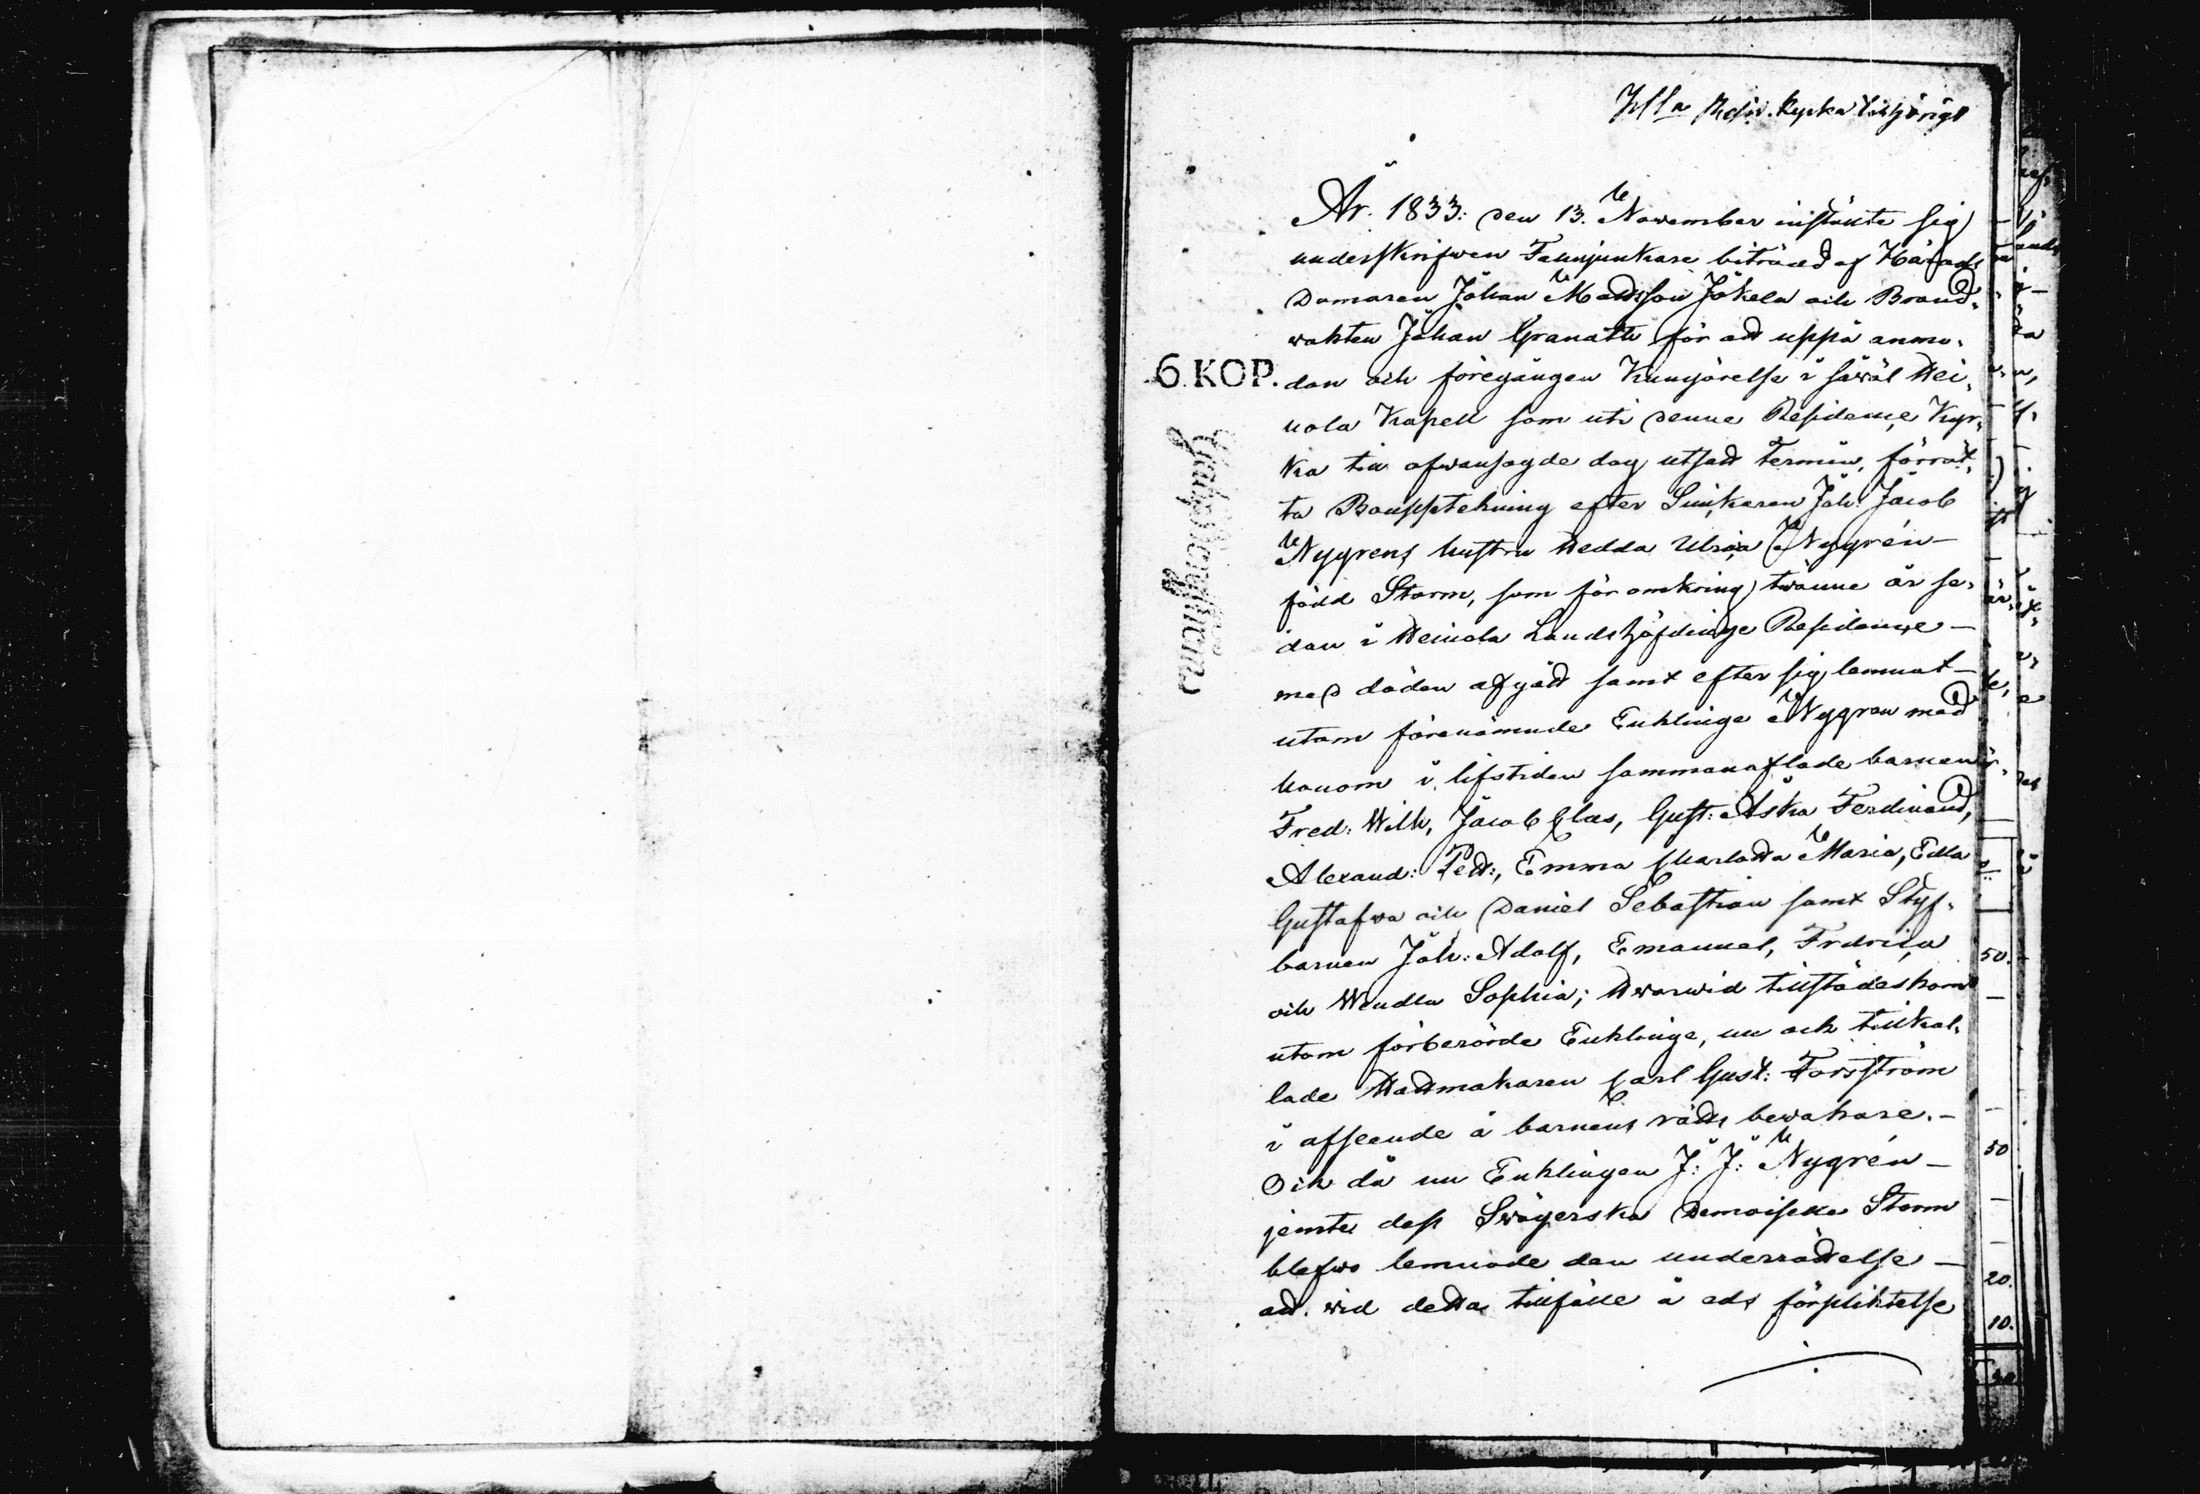 År 1833: den 13. November instälte sig
underskrifwen Fanjunkare biträdd af Härads
Domaren Johan Mattsson Jokela och Brand-
wakten Johan Granath för att uppå anmo-
6. KOP. dan och föregången Kungörelse i såwäl Hei-
nola Kapell som uti denne Residence Kyr-
ka till ofwansagde dag utsatt Termin, förrät-
ta Bouppteckning efter Snickaren Joh: Jacob
Nygrens hustru Hedda Ulrica Nygrén
född Storm, som för omkring twänne år se-
dan i Heinola Landshöfdinge Residence
med döden afgått samt efter sig lemnat
utom förenämnde Enkling Nygren med
honom i lifstiden sammanaflade barnen
Fred: Wilh, Jacob Clas, Gust: Oska Ferdinand,
Alexand: Pett:, Emma Charlotta Maria, Edla
Gustafwa och Daniel Sebastian samt Styf-
barnen Joh: Adolf, Emanuel, Fredrica
och Wendla Sophia; Hwarwid tillstädeskom
utom förberörde Enkling, nu och tillkal-
lade Hattmakaren Carl Gust: Forsström
i afseende å barnens rätts bewakare.
Och då nu Enklingen J: J: Nygrén
jemte dess Swägerska Demoiselle Storm
blefwo lemnade den underrättelse
att wid detta tillfälle å eds förpliktelse